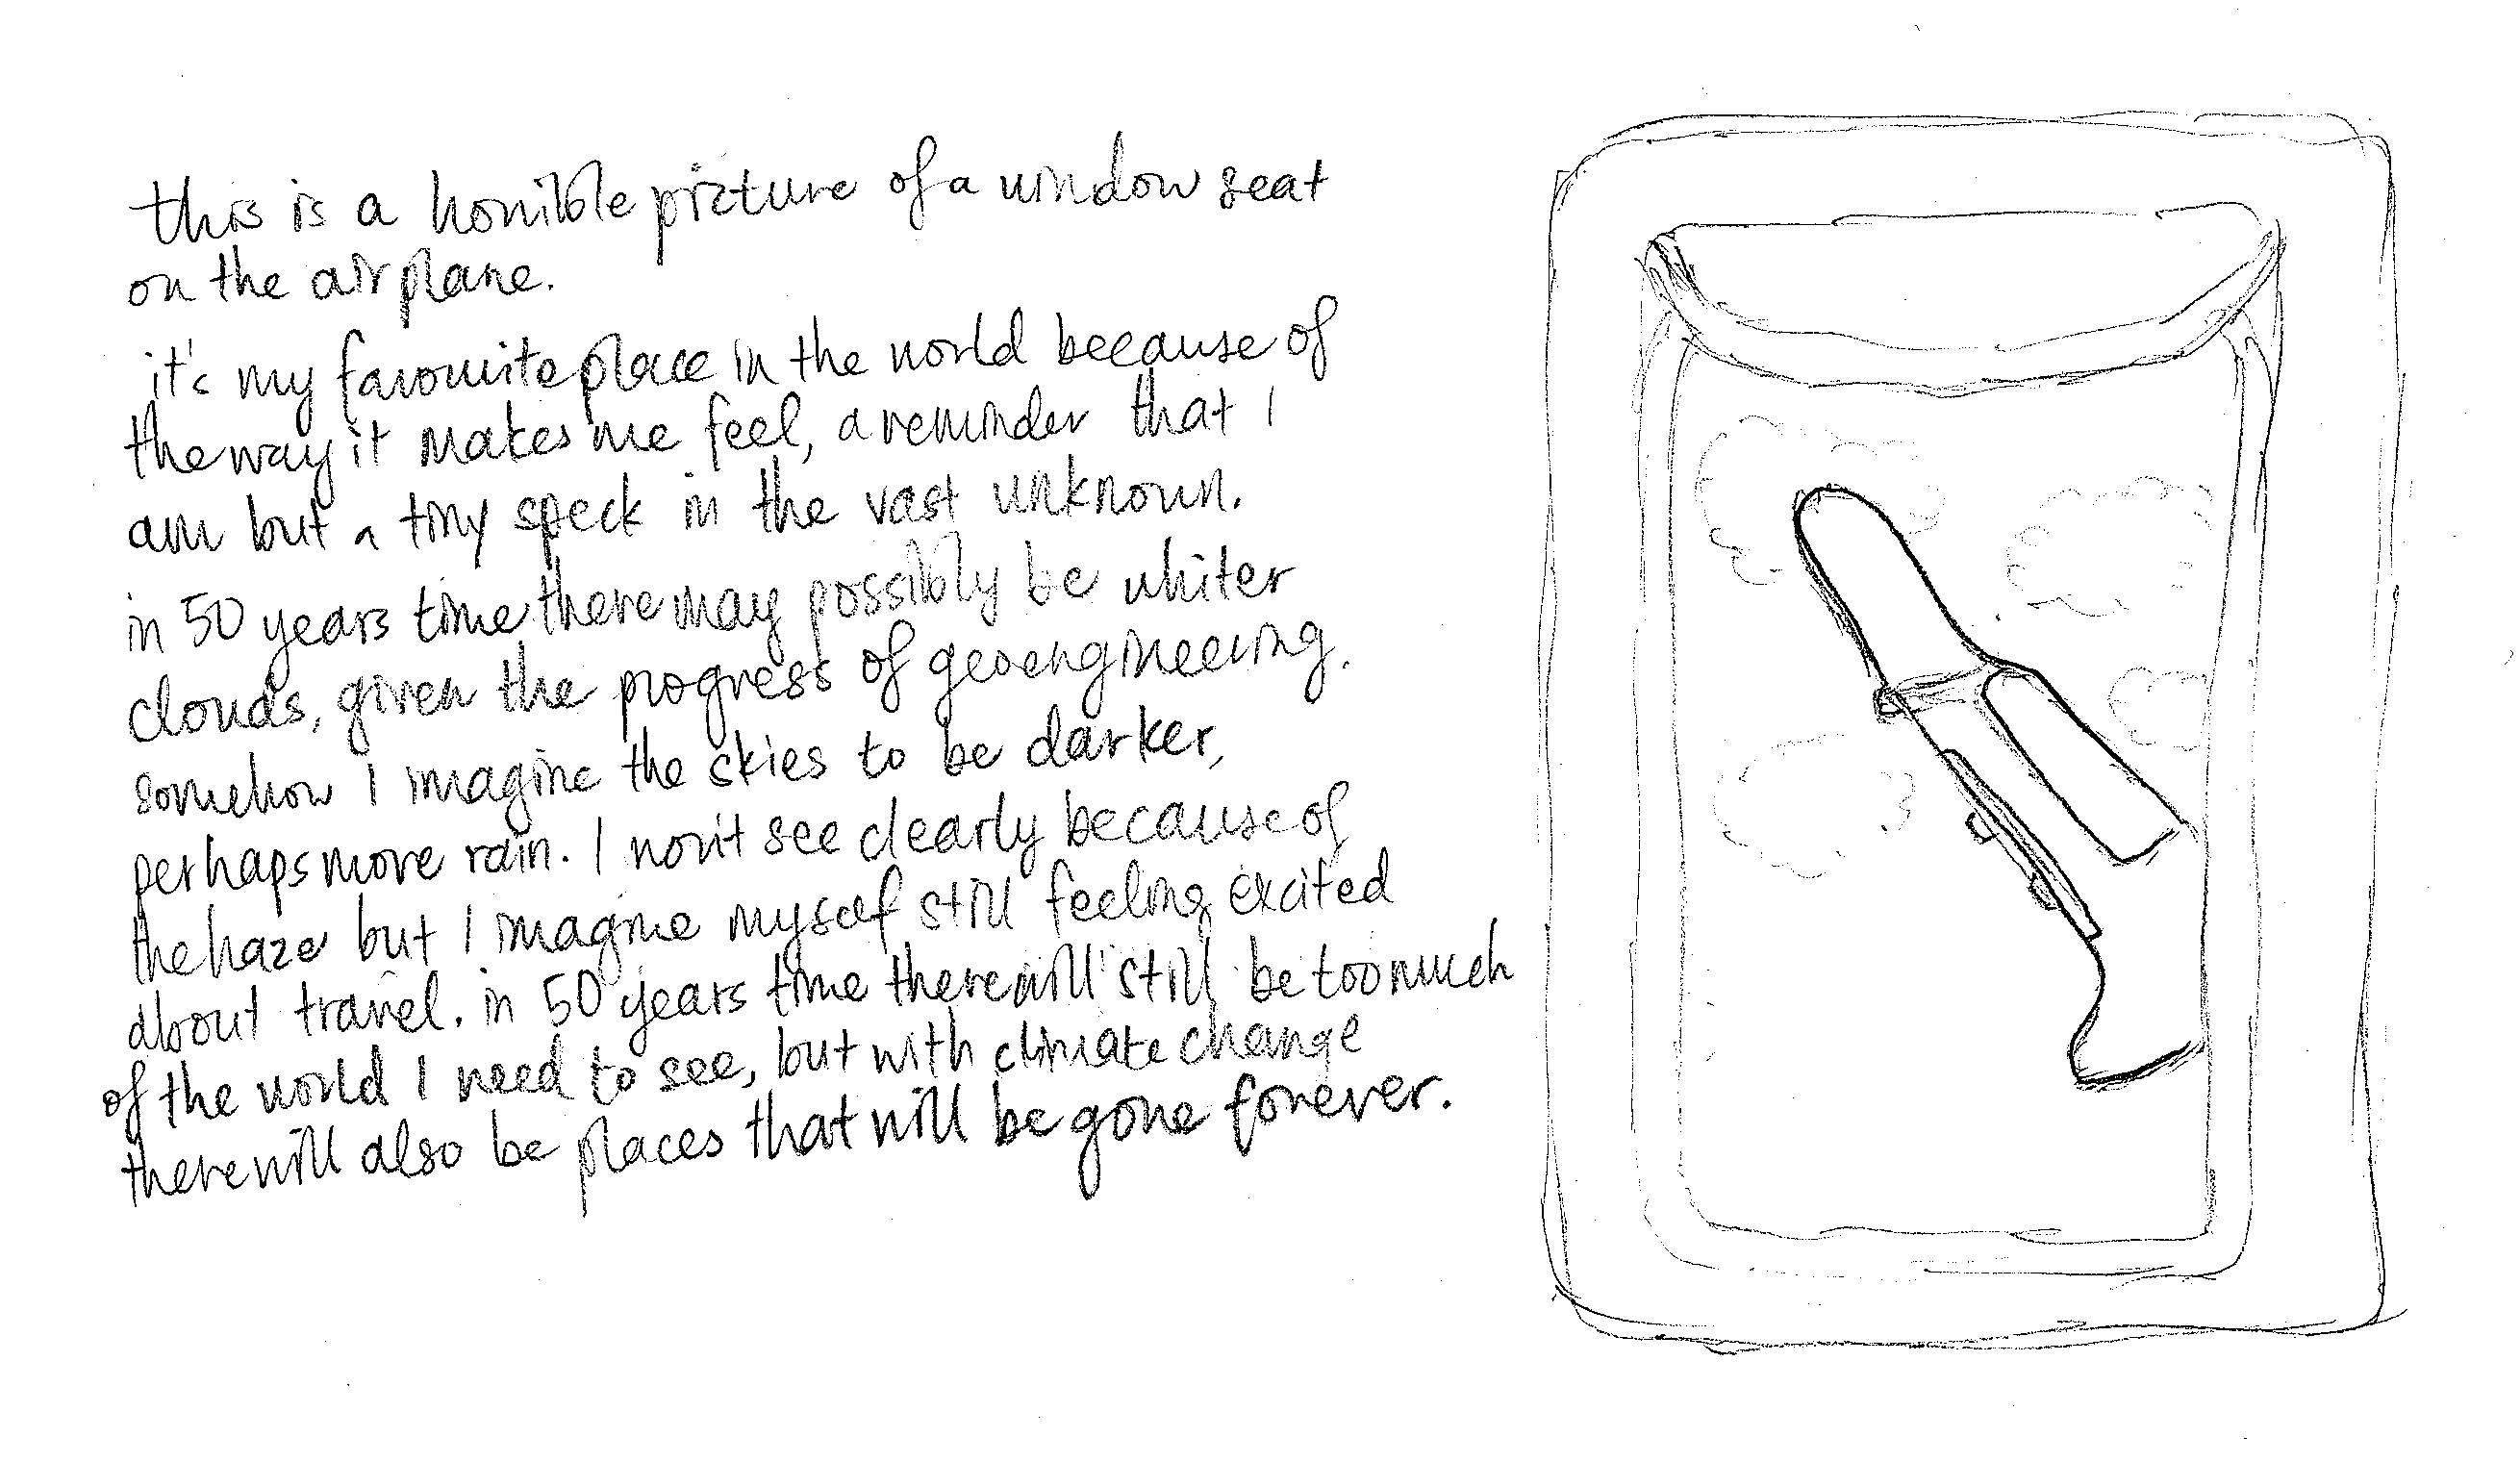 this is a horrible picture of a window seat
on the airplane.
it's my favourite place in the world because of
the way it makes me feel, a reminder that I
am but a tiny speck in the vast unknown.
in 50 years time there may possibly be whiter
clouds, given the progress of geoengineering.
somehow I imagine the skies to be darker,
perhaps more rain. I won't see clearly because of
the haze but I imagine myself still feeling excited
about travel. in 50 years time there will still be too much
of the world I need to see, but with climate change
there will also be places that will be gone forever.